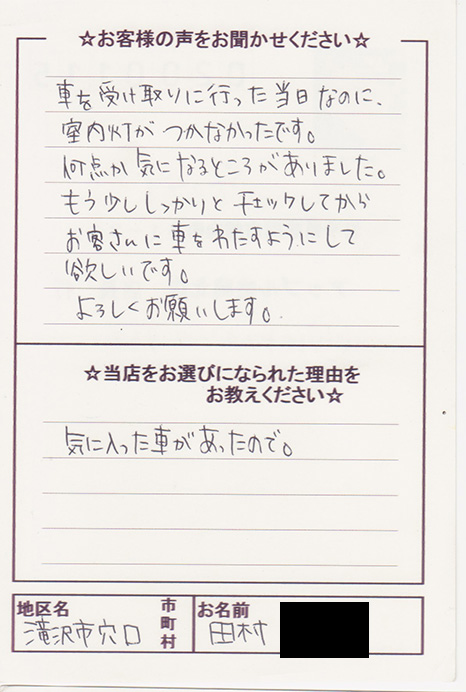 ☆お客様の声をお聞かせください☆
車を受け取りに行った当日なのに、
室内灯がつかなかったです。
何点か気になるところがありました。
もう少ししっかりとチェックしてから
お客さんに車をわたすようにして
欲しいです。
よろしくお願いします。
☆当店をお選びになられた理由を
お教えください☆
気に入った車があったので。
地区名 市町村 お名前
滝沢市穴口 田村